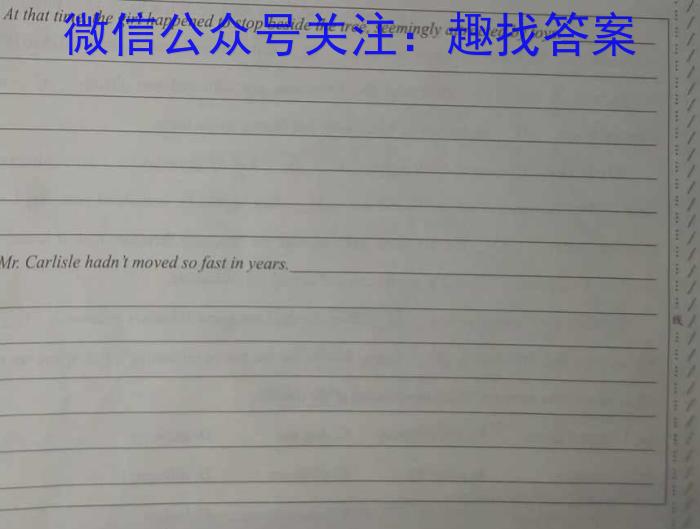 At that time, the girl happened to stop beside the tree, seemingly
微信公众号关注：趣找答案
Mr. Carlisle hadn't moved so fast in years.
线